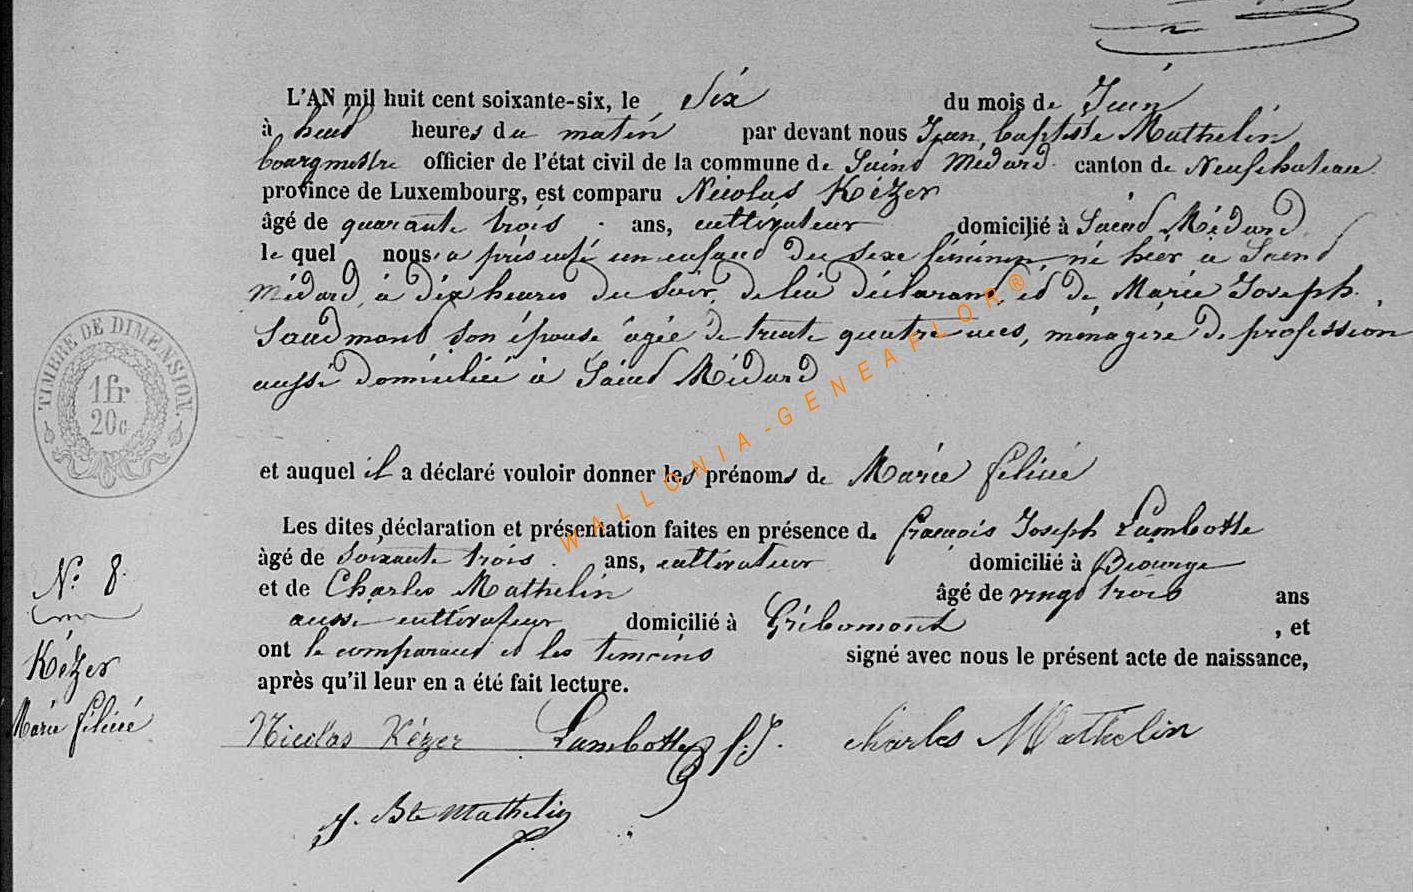 L'AN mil huit cent soixante-six, le Six du mois de Juin
à huit heures du matin par devant nous Jean, baptiste Mathelin
bourgmestre officier de l'état civil de la commune de Saint Médard canton de Neufchateau
province de Luxembourg, est comparu Nicolas Kézer
âgé de quarante trois ans, cultivateur domicilié à Saint Médard
le quel nous a présenté un enfant du sexe féminin, né hier à Saint
Médard, à dix heures du Soir, de lui déclarant, et de Marie Joseph
Saudmont son épouse âgée de trente quatre ans, ménagère de profession
aussi domiciliée à Saint Médard
et auquel il a déclaré vouloir donner les prénoms de Marie félicié
Les dites déclaration et présentation faites en présence de françois Joseph Lambotte
âgé de Soixante trois ans, cultivateur domicilié à Biourge
et de Charles Mathelin âgé de vingt trois ans
aussi cultivateur domicilié à Gribomont , et
ont le comparant et les temoins signé avec nous le présent acte de naissance,
après qu'il leur en a été fait lecture.
Nicolas Kézer Lambotte f: J. charles Mathelin
J. Bte Mathelin
TIMBRE DE DIMENSION.
1fr
20c
N° 8.
Kézer
Marie félicié
WALLONIA-GENEAFLOR®